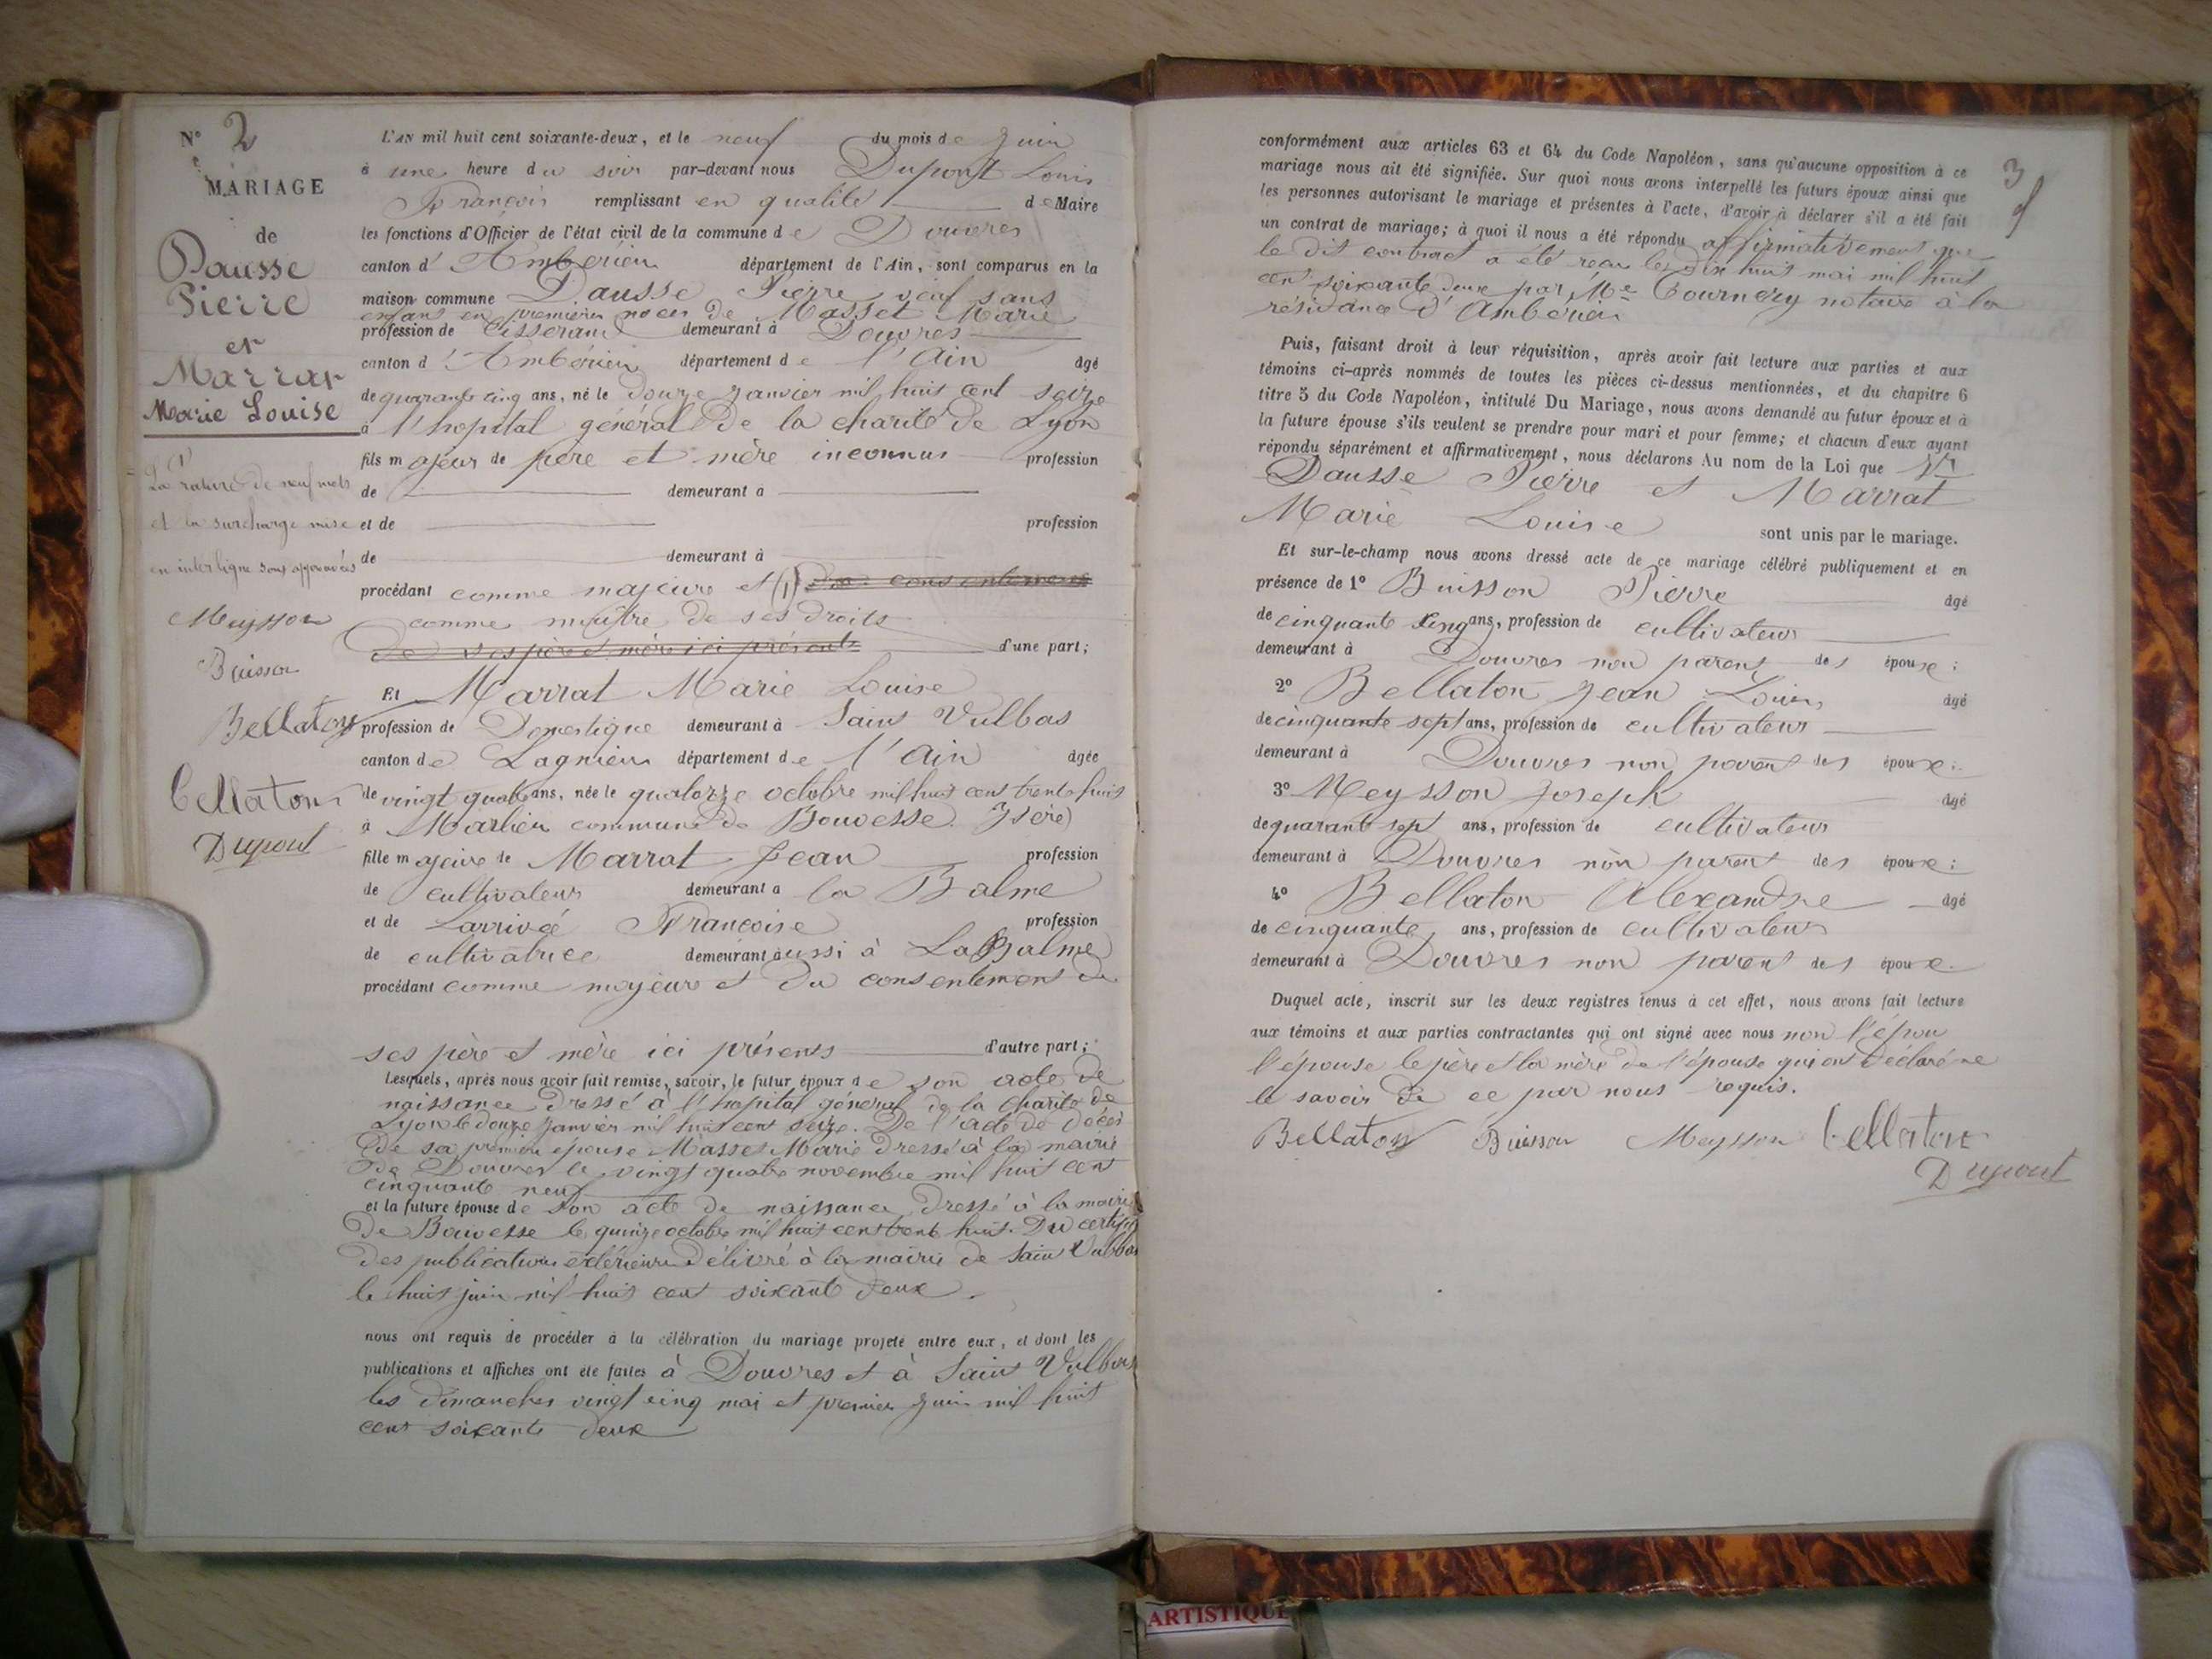 N° 2
MARIAGE
de
Dausse
Pierre
et
Marrat
Marie Louise
(1)
La rature de neuf mots
et la surcharge mise
en interligne sont approuvées
Meysson
Buisson
Bellaton
Bellaton
Dupont
L'AN mil huit cent soixante-deux, et le neuf du mois de Juin
à une heure du soir par-devant nous Dupont Louis
François remplissant en qualité de Maire
les fonctions d'Officier de l'état civil de la commune de Douvres
canton d'Ambérieu département de l'Ain, sont comparus en la
maison commune Dausse Pierre veuf sans
enfans en premières noces de Masset Marie
profession de Tisserand demeurant à Douvres
canton d'Ambérieu département de l'Ain âgé
de quarante cinq ans, né le douze Janvier mil huit cent seize
à l'hopital général de la charité de Lyon
fils majeur de père et mère inconnus profession
de demeurant à
et de profession
de demeurant à
procédant comme majeur et (1) du consentement
comme maître de ses droits
de ses père et mère ici présents d'une part;
Et Marrat Marie Louise
profession de Domestique demeurant à Saint Vulbas
canton de Lagnieu département de l'Ain âgée
de vingt quatre ans, née le quatorze octobre mil huit cent trente huit
à Marlieu commune de Bouvesse (Isère)
fille majeure de Marrat Jean profession
de cultivateur demeurant à la Balme
et de Larrivé Françoise profession
de cultivatrice demeurant aussi à La Balme
procédant comme majeure et du consentement de
ses père et mère ici présents d'autre part;
Lesquels, après nous avoir fait remise, savoir, le futur époux de son acte de
naissance dressé à l'hopital général de la Charité de
Lyon le douze janvier mil huit cent seize. De l'acte de décès
de sa première épouse Masset Marie dressé à la mairie
de Douvres le vingt quatre novembre mil huit cent
cinquante neuf
et la future épouse de son acte de naissance dressé à la mairie
de Bouvesse le quinze octobre mil huit cent trente huit. Du certificat
des publications extérieures délivré à la mairie de Saint Vulbas
le huit juin mil huit cent soixante deux.
nous ont requis de procéder à la célébration du mariage projeté entre eux, et dont les
publications et affiches ont été faites à Douvres et à Saint Vulbas
les dimanches vingt cinq mai et premier Juin mil huit
cent soixante deux
3
conformément aux articles 63 et 64 du Code Napoléon, sans qu'aucune opposition à ce
mariage nous ait été signifiée. Sur quoi nous avons interpellé les futurs époux ainsi que
les personnes autorisant le mariage et présentes à l'acte, d'avoir à déclarer s'il a été fait
un contrat de mariage; à quoi il nous a été répondu affirmativement que
le dit contract a été reçu le dix huit mai mil huit
cent soixante deux par Me Tournery notaire à la
résidance d'Ambérieu
Puis, faisant droit à leur réquisition, après avoir fait lecture aux parties et aux
témoins ci-après nommés de toutes les pièces ci-dessus mentionnées, et du chapitre 6
titre 5 du Code Napoléon, intitulé Du Mariage, nous avons demandé au futur époux et à
la future épouse s'ils veulent se prendre pour mari et pour femme; et chacun d'eux ayant
répondu séparément et affirmativement, nous déclarons Au nom de la Loi que Sr
Dausse Pierre et Marrat
Marie Louise sont unis par le mariage.
Et sur-le-champ nous avons dressé acte de ce mariage célébré publiquement et en
présence de 1° Buisson Pierre âgé
de cinquante cinq ans, profession de cultivateur
demeurant à Douvres non parent des épouse;
2° Bellaton Jean Louis, âgé
de cinquante sept ans, profession de cultivateur
demeurant à Douvres non parent des épouse;
3° Meysson Joseph âgé
de quarante sept ans, profession de cultivateur
demeurant à Douvres non parent des épouse;
4° Bellaton Alexandre âgé
de cinquante ans, profession de cultivateur
demeurant à Douvres non parent des épouse.
Duquel acte, inscrit sur les deux registres tenus à cet effet, nous avons fait lecture
aux témoins et aux parties contractantes qui ont signé avec nous non l'épou
l'épouse le père et la mère de l'épouse qui ont déclaré ne
le savoir de ce par nous requis.
Bellaton Buisson Meysson Bellaton
Dupont
ARTISTIQUE